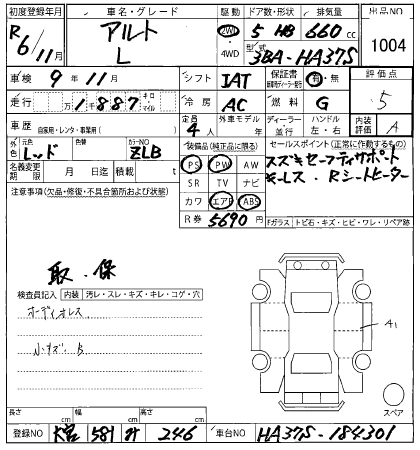 初度登録年月 車名・グレード 駆動 ドア数・形状 排気量 出品NO
R6/11月 アルト L 2WD 4WD 5 HB 660cc 1004
型式 3BA-HA37S
車検 9年11月 シフト IAT 保証書 有・無 評価点
走行 万1887 キロ・マイル 冷房 AC 燃料 G 5
車歴 自家用・レンタ・事業用( ) 定員 4人 外車モデル 年 ディーラー 並行 ハンドル 左・右 内装評価 A
外色 元色 レッド 色替 カラーNO ZLB
装備品(純正品に限る) セールスポイント(正常に作動するもの)
名義変更期限 月 日 迄 積載 t
PS PW AW スズキセーフティサポート
SR TV ナビ キーレス・Rシートヒーター
注意事項(欠品・修復・不具合箇所および状態)
カワ エアB ABS
R券 5690円
Fガラス トビ石・キズ・ヒビ・ワレ・リペア跡
取・保
検査員記入 内装 汚レ・スレ・キズ・キレ・コゲ・穴
オーディオレス
小キズ・B
A1
スペア
長さ cm 幅 cm 高さ cm
登録NO 大宮 581 246 車台NO HA37S-184301